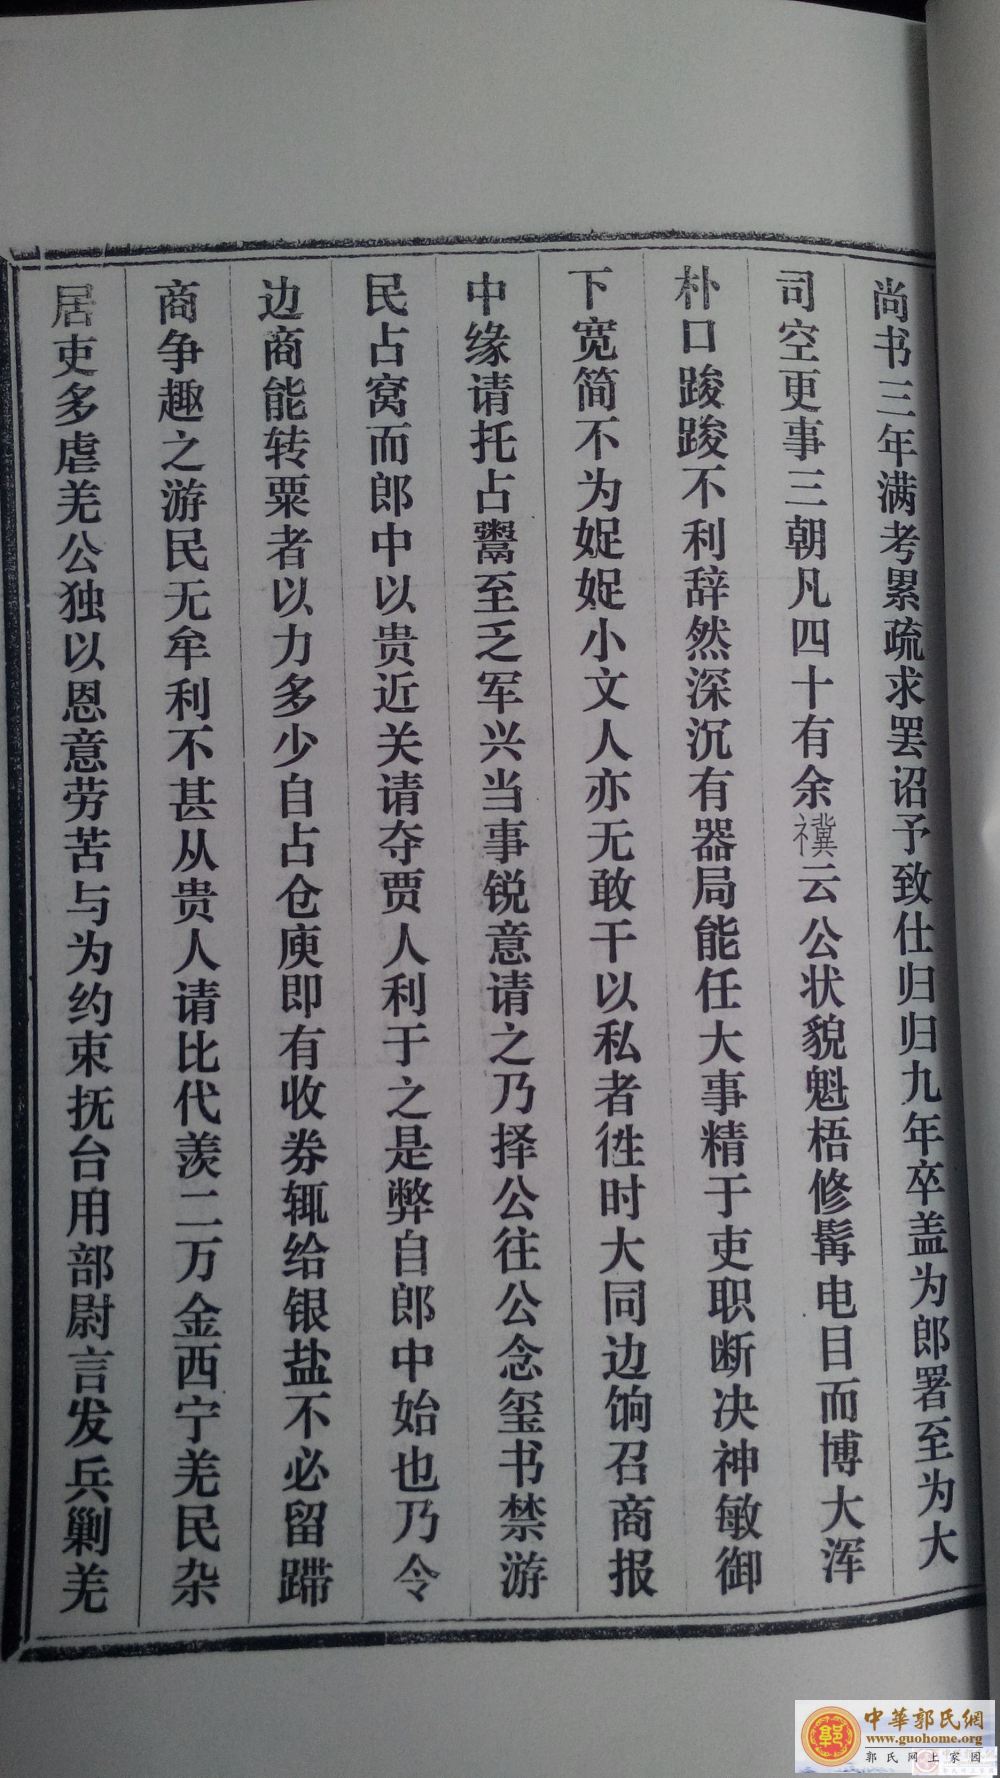 尚书三年满考累疏求罢诏予致仕归归九年卒盖为郎署至为大
司空更事三朝凡四十有余禩云公状貌魁梧修髯电目而博大浑
朴口踆踆不利辞然深沉有器局能任大事精于吏职断决神敏御
下宽简不为娖娖小文人亦无敢干以私者徃时大同边饷召商报
中缘请托占鬻至乏军兴当事锐意请之乃择公往公念玺书禁游
民占窝而郎中以贵近关请夺贾人利于之是弊自郎中始也乃令
边商能转粟者以力多少自占仓庾即有收券辄给银盐不必留蹛
商争趣之游民无牟利不甚从贵人请比代羡二万金西宁羌民杂
居吏多虐羌公独以恩意劳苦与为约束抚台用部尉言发兵剿羌
中華郭氏網
www.guohome.org
郭氏网上家园